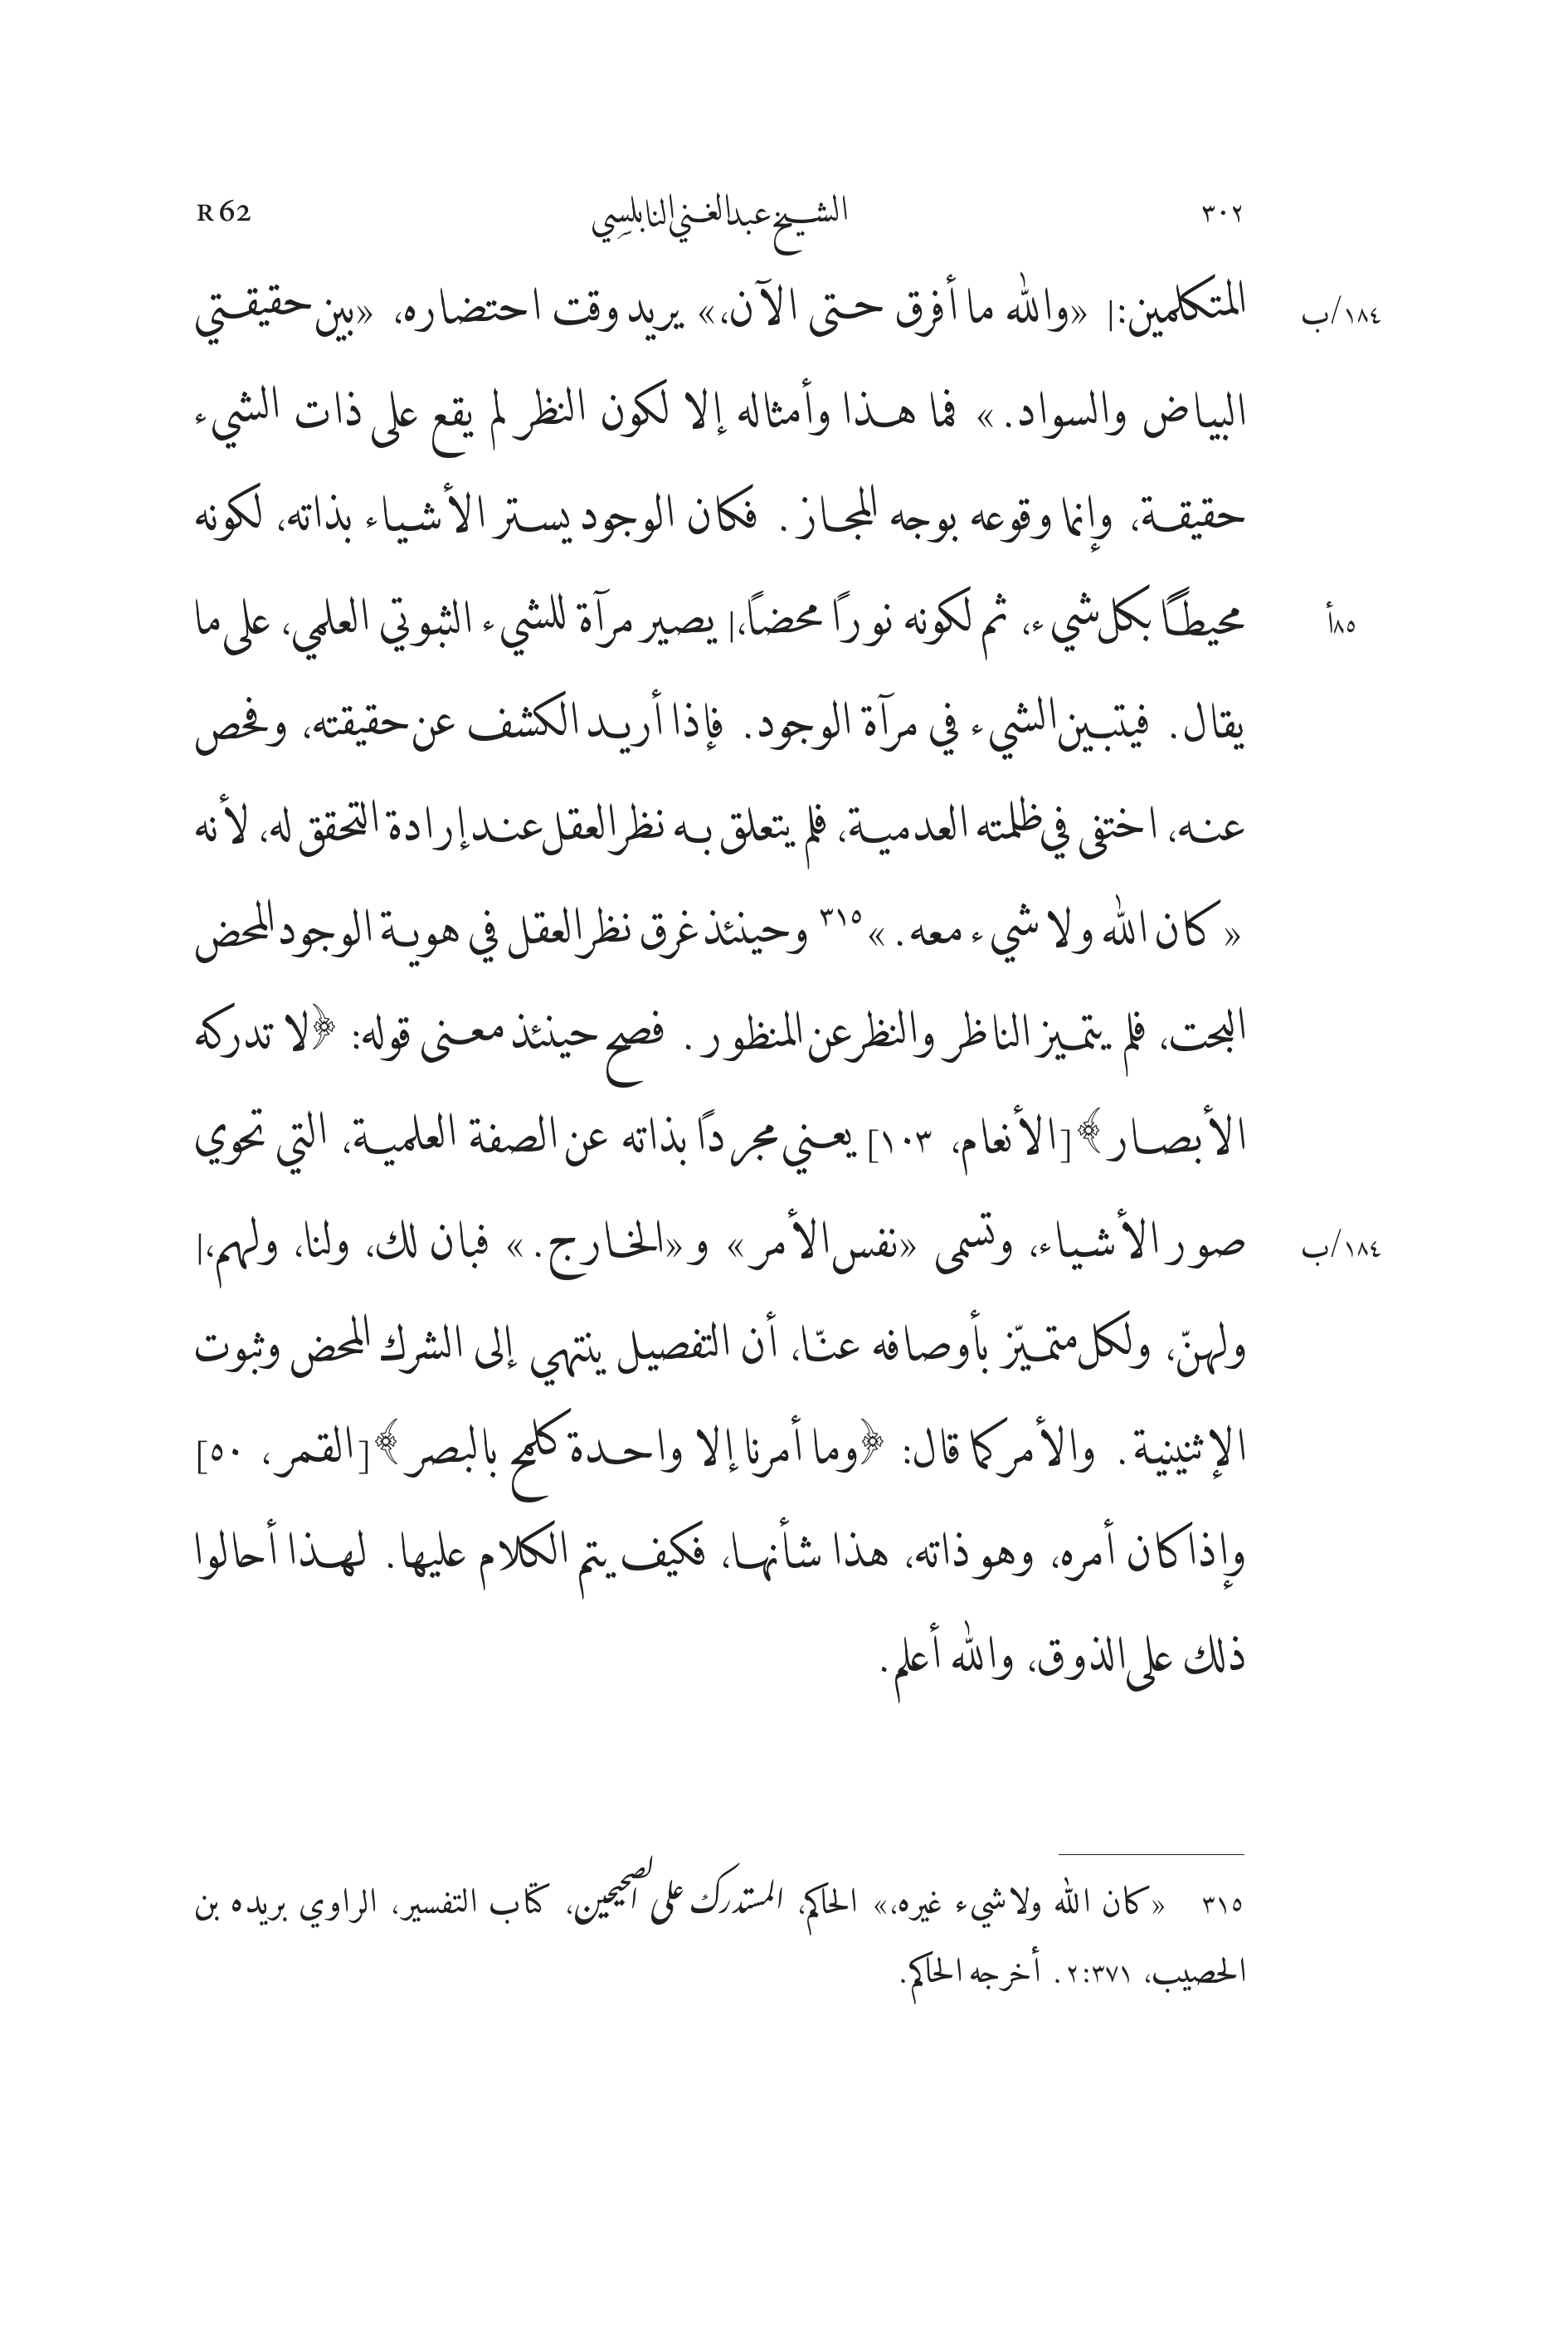 ٣٠٢ الشيخ عبد الغني النابلسِي R 62
المتكلمين:| «والله ما أفرق حتى الآن،» يريد وقت احتضاره، «بين حقيقتي ١٨٤/ب
البياض والسواد.» فما هذا وأمثاله إلا لكون النظر لم يقع على ذات الشيء
حقيقة، وإنما وقوعه بوجه المجاز. فكان الوجود يستر الأشياء بذاته، لكونه
محيطًا بكل شيء، ثم لكونه نورًا محضًا،| يصير مرآة للشيء الثبوتي العلمي، على ما ٨٥أ
يقال. فيتبين الشيء في مرآة الوجود. فإذا أريد الكشف عن حقيقته، وفحص
عنه، اختفى في ظلمته العدمية، فلم يتعلق به نظر العقل عند إرادة التحقق له، لأنه
«كان الله ولا شيء معه.»٣١٥ وحينئذ غرق نظر العقل في هوية الوجود المحض
البحت، فلم يتميز الناظر والنظر عن المنظور. فصح حينئذ معنى قوله: ﴿لا تدركه
الأبصار﴾ [الأنعام، ١٠٣] يعني مجردًا بذاته عن الصفة العلمية، التي تحوي
صور الأشياء، وتسمى «نفس الأمر» و«الخارج.» فبان لك، ولنا، ولهم،| ١٨٤/ب
ولهنّ، ولكل متميّز بأوصافه عنّا، أن التفصيل ينتهي إلى الشرك المحض وثبوت
الإثنينية. والأمر كما قال: ﴿وما أمرنا إلا واحدة كلمح بالبصر﴾ [القمر، ٥٠]
وإذا كان أمره، وهو ذاته، هذا شأنها، فكيف يتم الكلام عليها. لهذا أحالوا
ذلك على الذوق، والله أعلم.
٣١٥ «كان الله ولا شيء غيره،» الحاكم، المستدرك على الصحيحين، كتاب التفسير، الراوي بريده بن
الحصيب، ٢:٣٧١. أخرجه الحاكم.